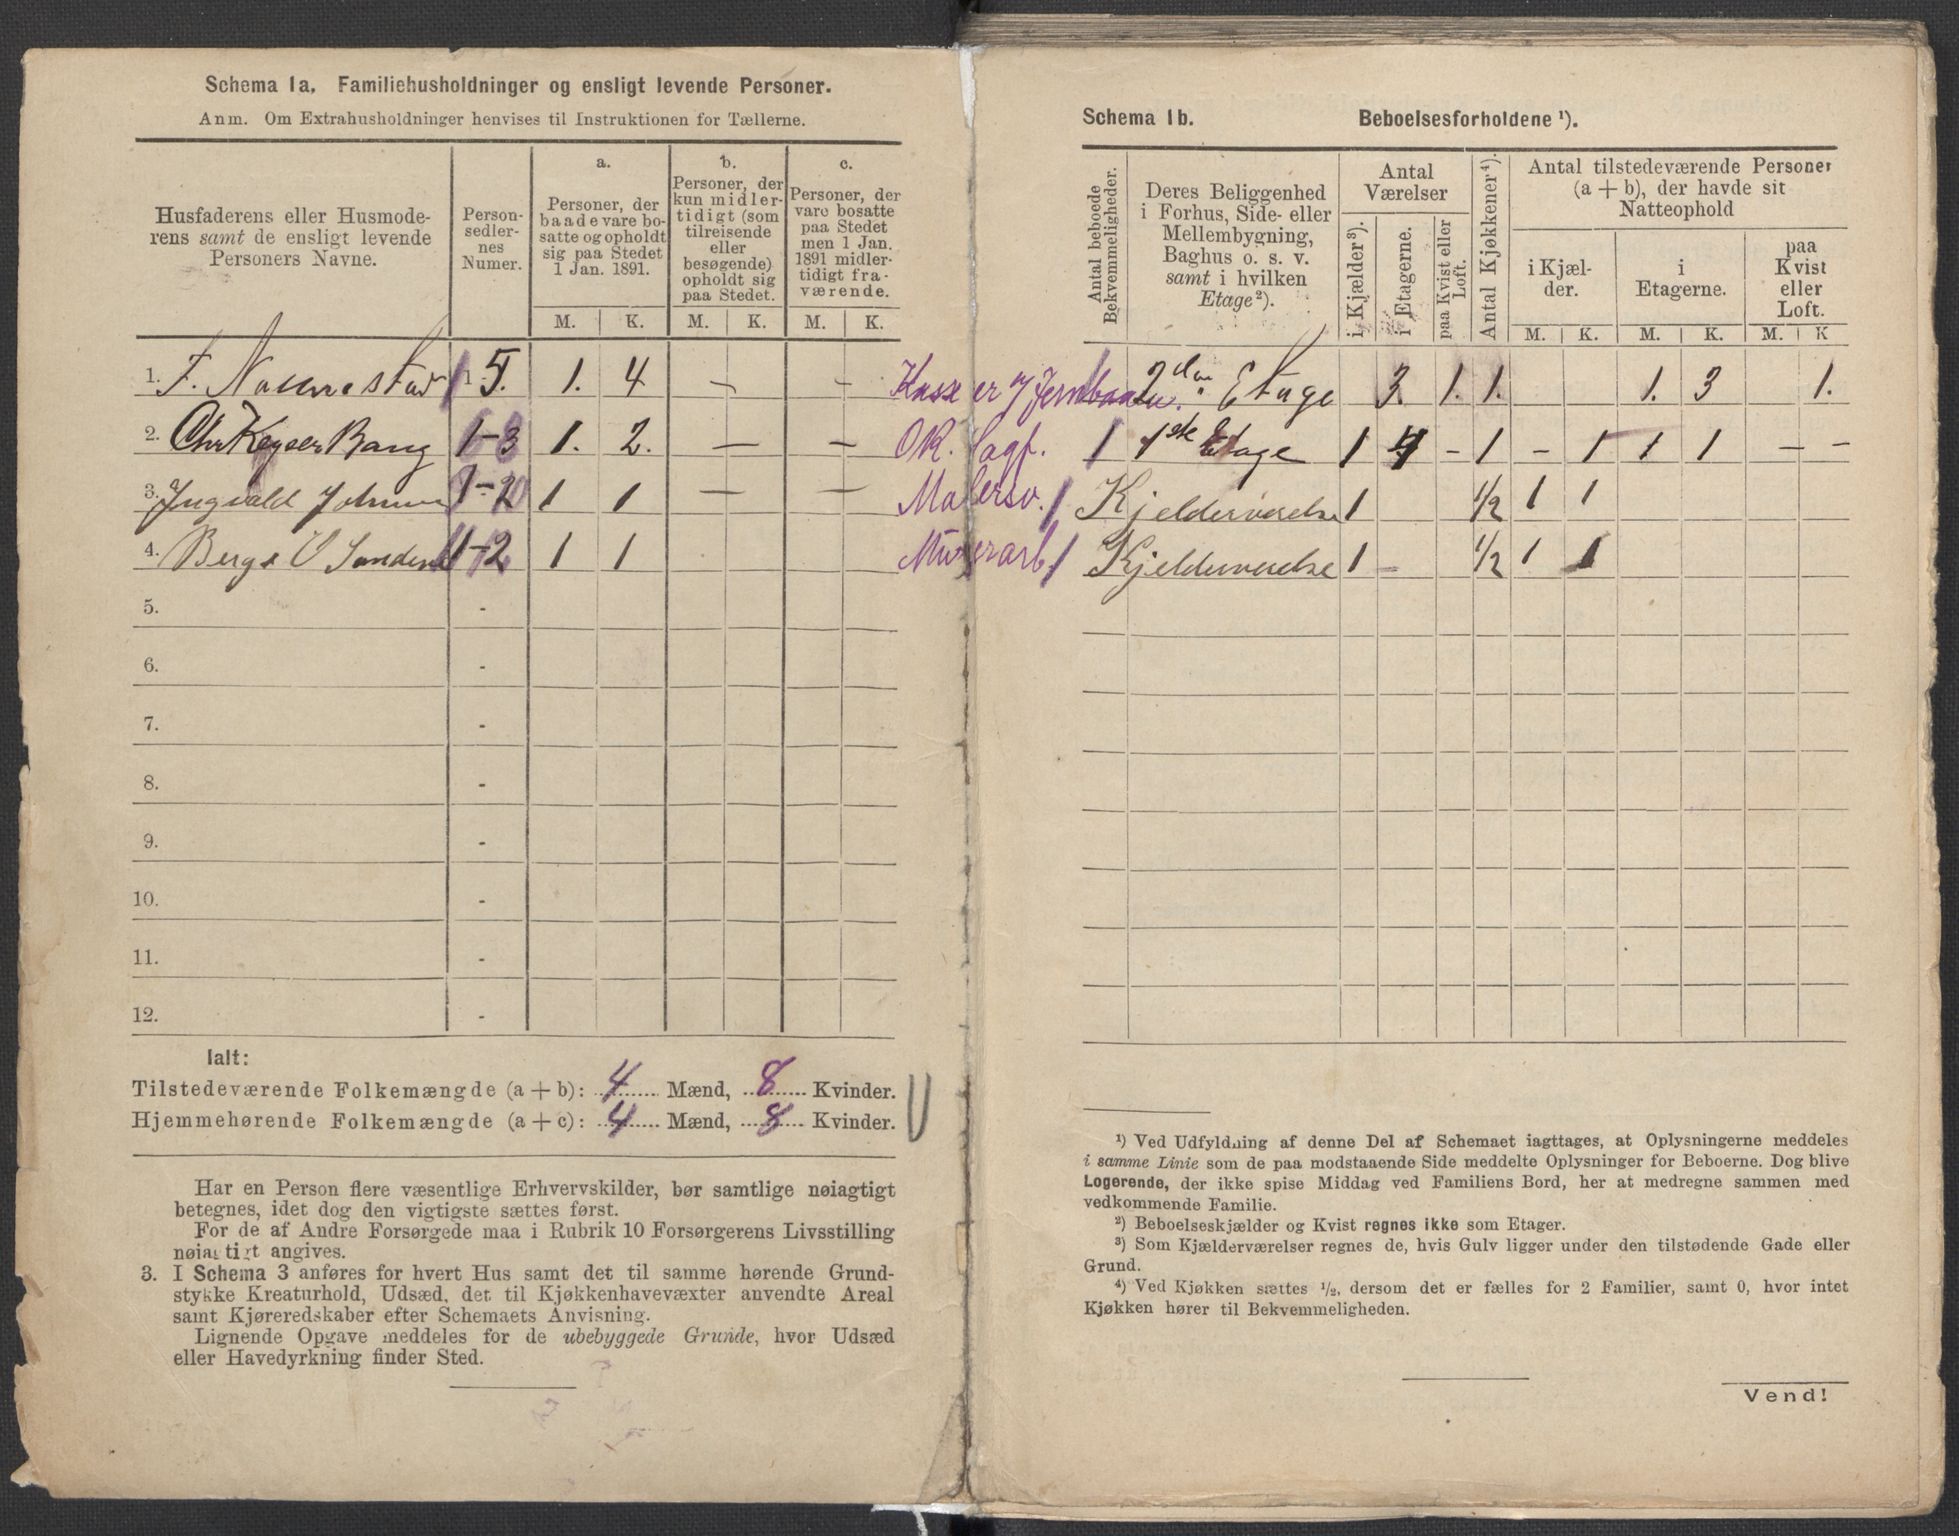 Schema 1a. Familiehusholdninger og ensligt levende Personer.
Anm. Om Extrahusholdninger henvises til Instruktionen for Tællerne.
Husfaderens eller Husmode-
rens samt de ensligt levende
Personers Navne.
Person-
sedler-
nes
Numer.
a.
Personer, der
baade vare bo-
satte og opholdt
sig paa Stedet
1 Jan. 1891.
b.
Personer, der
kun midler-
tidigt (som
tilreisende
eller
besøgende)
opholdt sig
paa Stedet.
c.
Personer, der
vare bosatte
paa Stedet
men 1 Jan.
1891 midler-
tidigt fra-
værende.
M. K. M. K. M. K.
1. F. 1 5. 1. 4 - -
2. Chr Keyser Bang 1-3 1. 2. - -
3. Ingvald 1-2 1 1 - -
4. 1-2 1 1
5. -
6. -
7. -
8. -
9. -
10. -
11. -
12. -
Ialt:
Tilstedeværende Folkemængde (a + b): 4 Mænd, 8 Kvinder.
Hjemmehørende Folkemængde (a + c): 4 Mænd, 8 Kvinder.
Har en Person flere væsentlige Erhvervskilder, bør samtlige nøiagtigt
betegnes, idet dog den vigtigste sættes først.
For de af Andre Forsørgede maa i Rubrik 10 Forsørgerens Livsstilling
nøiagtigt angives.
3. I Schema 3 anføres for hvert Hus samt det til samme hørende Grund-
stykke Kreaturhold, Udsæd, det til Kjøkkenhavevæxter anvendte Areal
samt Kjøreredskaber efter Schemaets Anvisning.
Lignende Opgave meddeles for de ubebyggede Grunde, hvor Udsæd
eller Havedyrkning finder Sted.
Schema 1b. Beboelsesforholdene ¹).
Antal beboede
Bekvemmeligheder.
Deres Beliggenhed
i Forhus, Side- eller
Mellembygning,
Baghus o. s. v.
samt i hvilken
Etage²).
Antal
Værelser
i Kjælder³).
i Etagerne.
paa Kvist eller
Loft.
Antal Kjøkkener⁴).
Antal tilstedeværende Personer
(a + b), der havde sit
Natteophold
i Kjæl-
der.
i
Etagerne.
paa
Kvist
eller
Loft.
M. K. M. K. M. K
Kasserer v/ Jernbanen. 1 2den Etage 3 1. 1. 1. 3 1.
OR. Sagf. 1 1ste Etage 1 4 - 1 - 1 1 1 - -
Malersv. 1 Kjelderværelse 1 ½ 1 1
Murerarb. 1 Kjelderværelse 1 - ½ 1 1
¹) Ved Udfyldning af denne Del af Schemaet iagttages, at Oplysningerne meddeles
i samme Linie som de paa modstaaende Side meddelte Oplysninger for Beboerne. Dog blive
Logerende, der ikke spise Middag ved Familiens Bord, her at medregne sammen med
vedkommende Familie.
²) Beboelseskjælder og Kvist regnes ikke som Etager.
³) Som Kjælderværelser regnes de, hvis Gulv ligger under den tilstødende Gade eller
Grund.
⁴) Ved Kjøkken sættes ½, dersom det er fælles for 2 Familier, samt 0, hvor intet
Kjøkken hører til Bekvemmeligheden.
Vend!